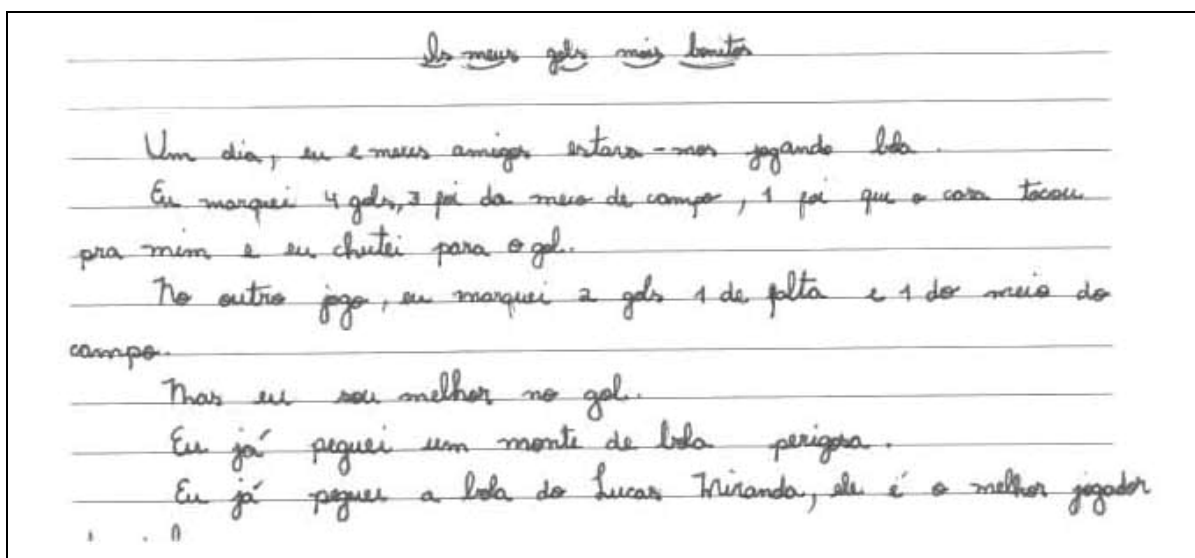 Os meus gols mais bonitos
Um dia, eu e meus amigos estava-mos jogando bola.
Eu marquei 4 gols, 3 foi da meio de campo, 1 foi que o cara tocou
pra mim e eu chutei para o gol.
No outro jogo, eu marquei 2 gols 1 de falta e 1 do meio do
campo.
Mas eu sou melhor no gol.
Eu já peguei um monte de bola perigosa.
Eu já peguei a bola do Lucas Miranda, ele é o melhor jogador